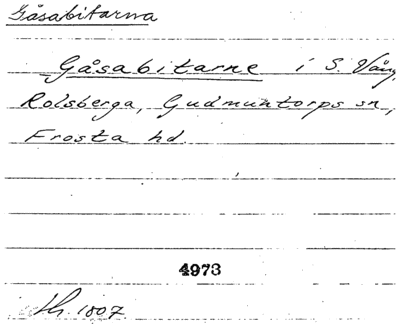 Gåsabitarna
Gåsabitarne i S. Vång,
Rolsberga, Gudmuntorps sn,
Frosta hd.
4973
1807